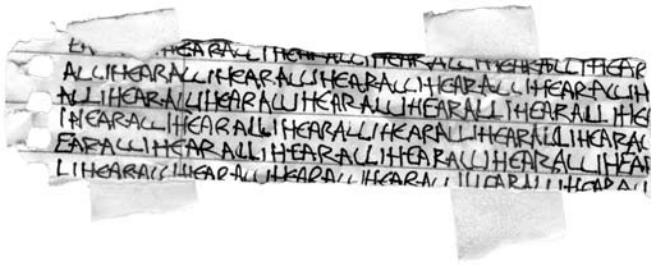 HEARALLIHEARALLIHEARALLIHEARALLIHEAR
ALLIHEARALLIHEARALLIHEARALLIHEARALLIHEARALLIH
ALLIHEARALLIHEARALLIHEARALLIHEARALLIHE
IHEARALLIHEARALLIHEARALLIHEARALLIHEARALLIHEARAL
EARALLIHEARALLIHEARALLIHEARALLIHEARALLIHEAR
LIHEARALLIHEARALLIHEARALLIHEARALLIHEARALLIHEARALL